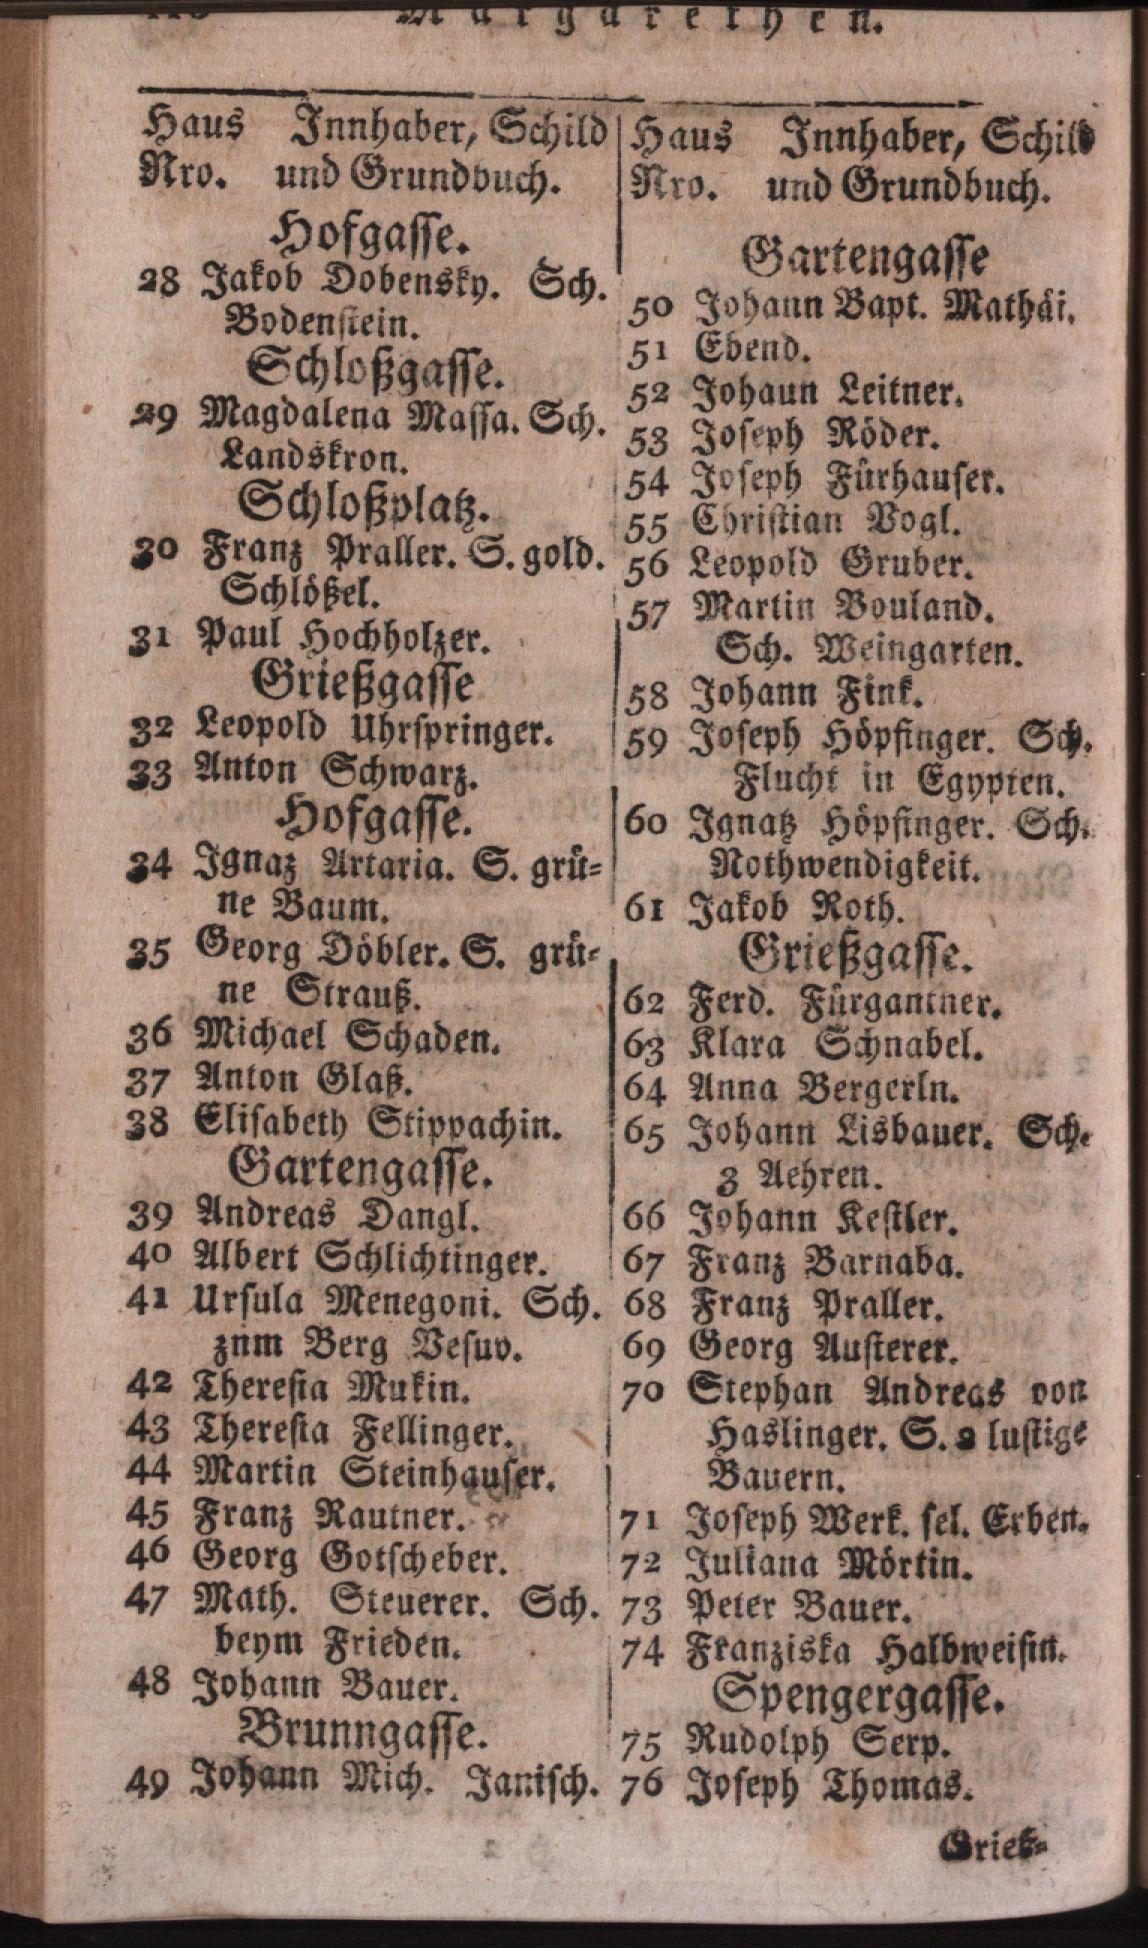 Margarethen.
Haus Innhaber, Schild
Nro. und Grundbuch.
Hofgasse.
28 Jakob Dobensky. Sch.
Bodenstein.
Schloßgasse.
29 Magdalena Massa. Sch.
Landskron.
Schloßplatz.
30 Franz Praller. S. gold.
Schlößel.
31 Paul Hochholzer.
Grießgasse
32 Leopold Uhrspringer.
33 Anton Schwarz.
Hofgasse.
34 Ignaz Artaria. S. grü-
ne Baum.
35 Georg Döbler. S. grü-
ne Strauß.
36 Michael Schaden.
37 Anton Glaß.
38 Elisabeth Stippachin.
Gartengasse.
39 Andreas Dangl.
40 Albert Schlichtinger.
41 Ursula Menegoni. Sch.
znm Berg Vesuv.
42 Theresia Mukin.
43 Theresia Fellinger.
44 Martin Steinhauser.
45 Franz Rautner.
46 Georg Gotscheber.
47 Math. Steuerer. Sch.
beym Frieden.
48 Johann Bauer.
Brunngasse.
49 Johann Mich. Janisch.
Haus Innhaber, Schild
Nro. und Grundbuch.
Gartengasse
50 Johann Bapt. Mathäi.
51 Ebend.
52 Johaun Leitner.
53 Joseph Röder.
54 Joseph Fürhauser.
55 Christian Vogl.
56 Leopold Gruber.
57 Martin Vouland.
Sch. Weingarten.
58 Johann Fink.
59 Joseph Höpfinger. Sch.
Flucht in Egypten.
60 Ignatz Höpfinger. Sch.
Nothwendigkeit.
61 Jakob Roth.
Grießgasse.
62 Ferd. Fürgantner.
63 Klara Schnabel.
64 Anna Bergerln.
65 Johann Lisbauer. Sch.
3 Aehren.
66 Johann Kestler.
67 Franz Barnaba.
68 Franz Praller.
69 Georg Austerer.
70 Stephan Andreas von
Haslinger. S. 2 lustige
Bauern.
71 Joseph Werk. sel. Erben.
72 Juliana Mörtin.
73 Peter Bauer.
74 Franziska Halbweisin.
Spengergasse.
75 Rudolph Serp.
76 Joseph Thomas.
Grieß-